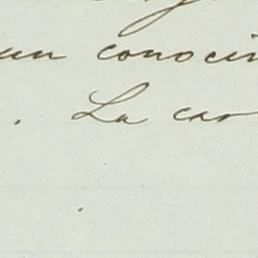 un conoci
. La cas